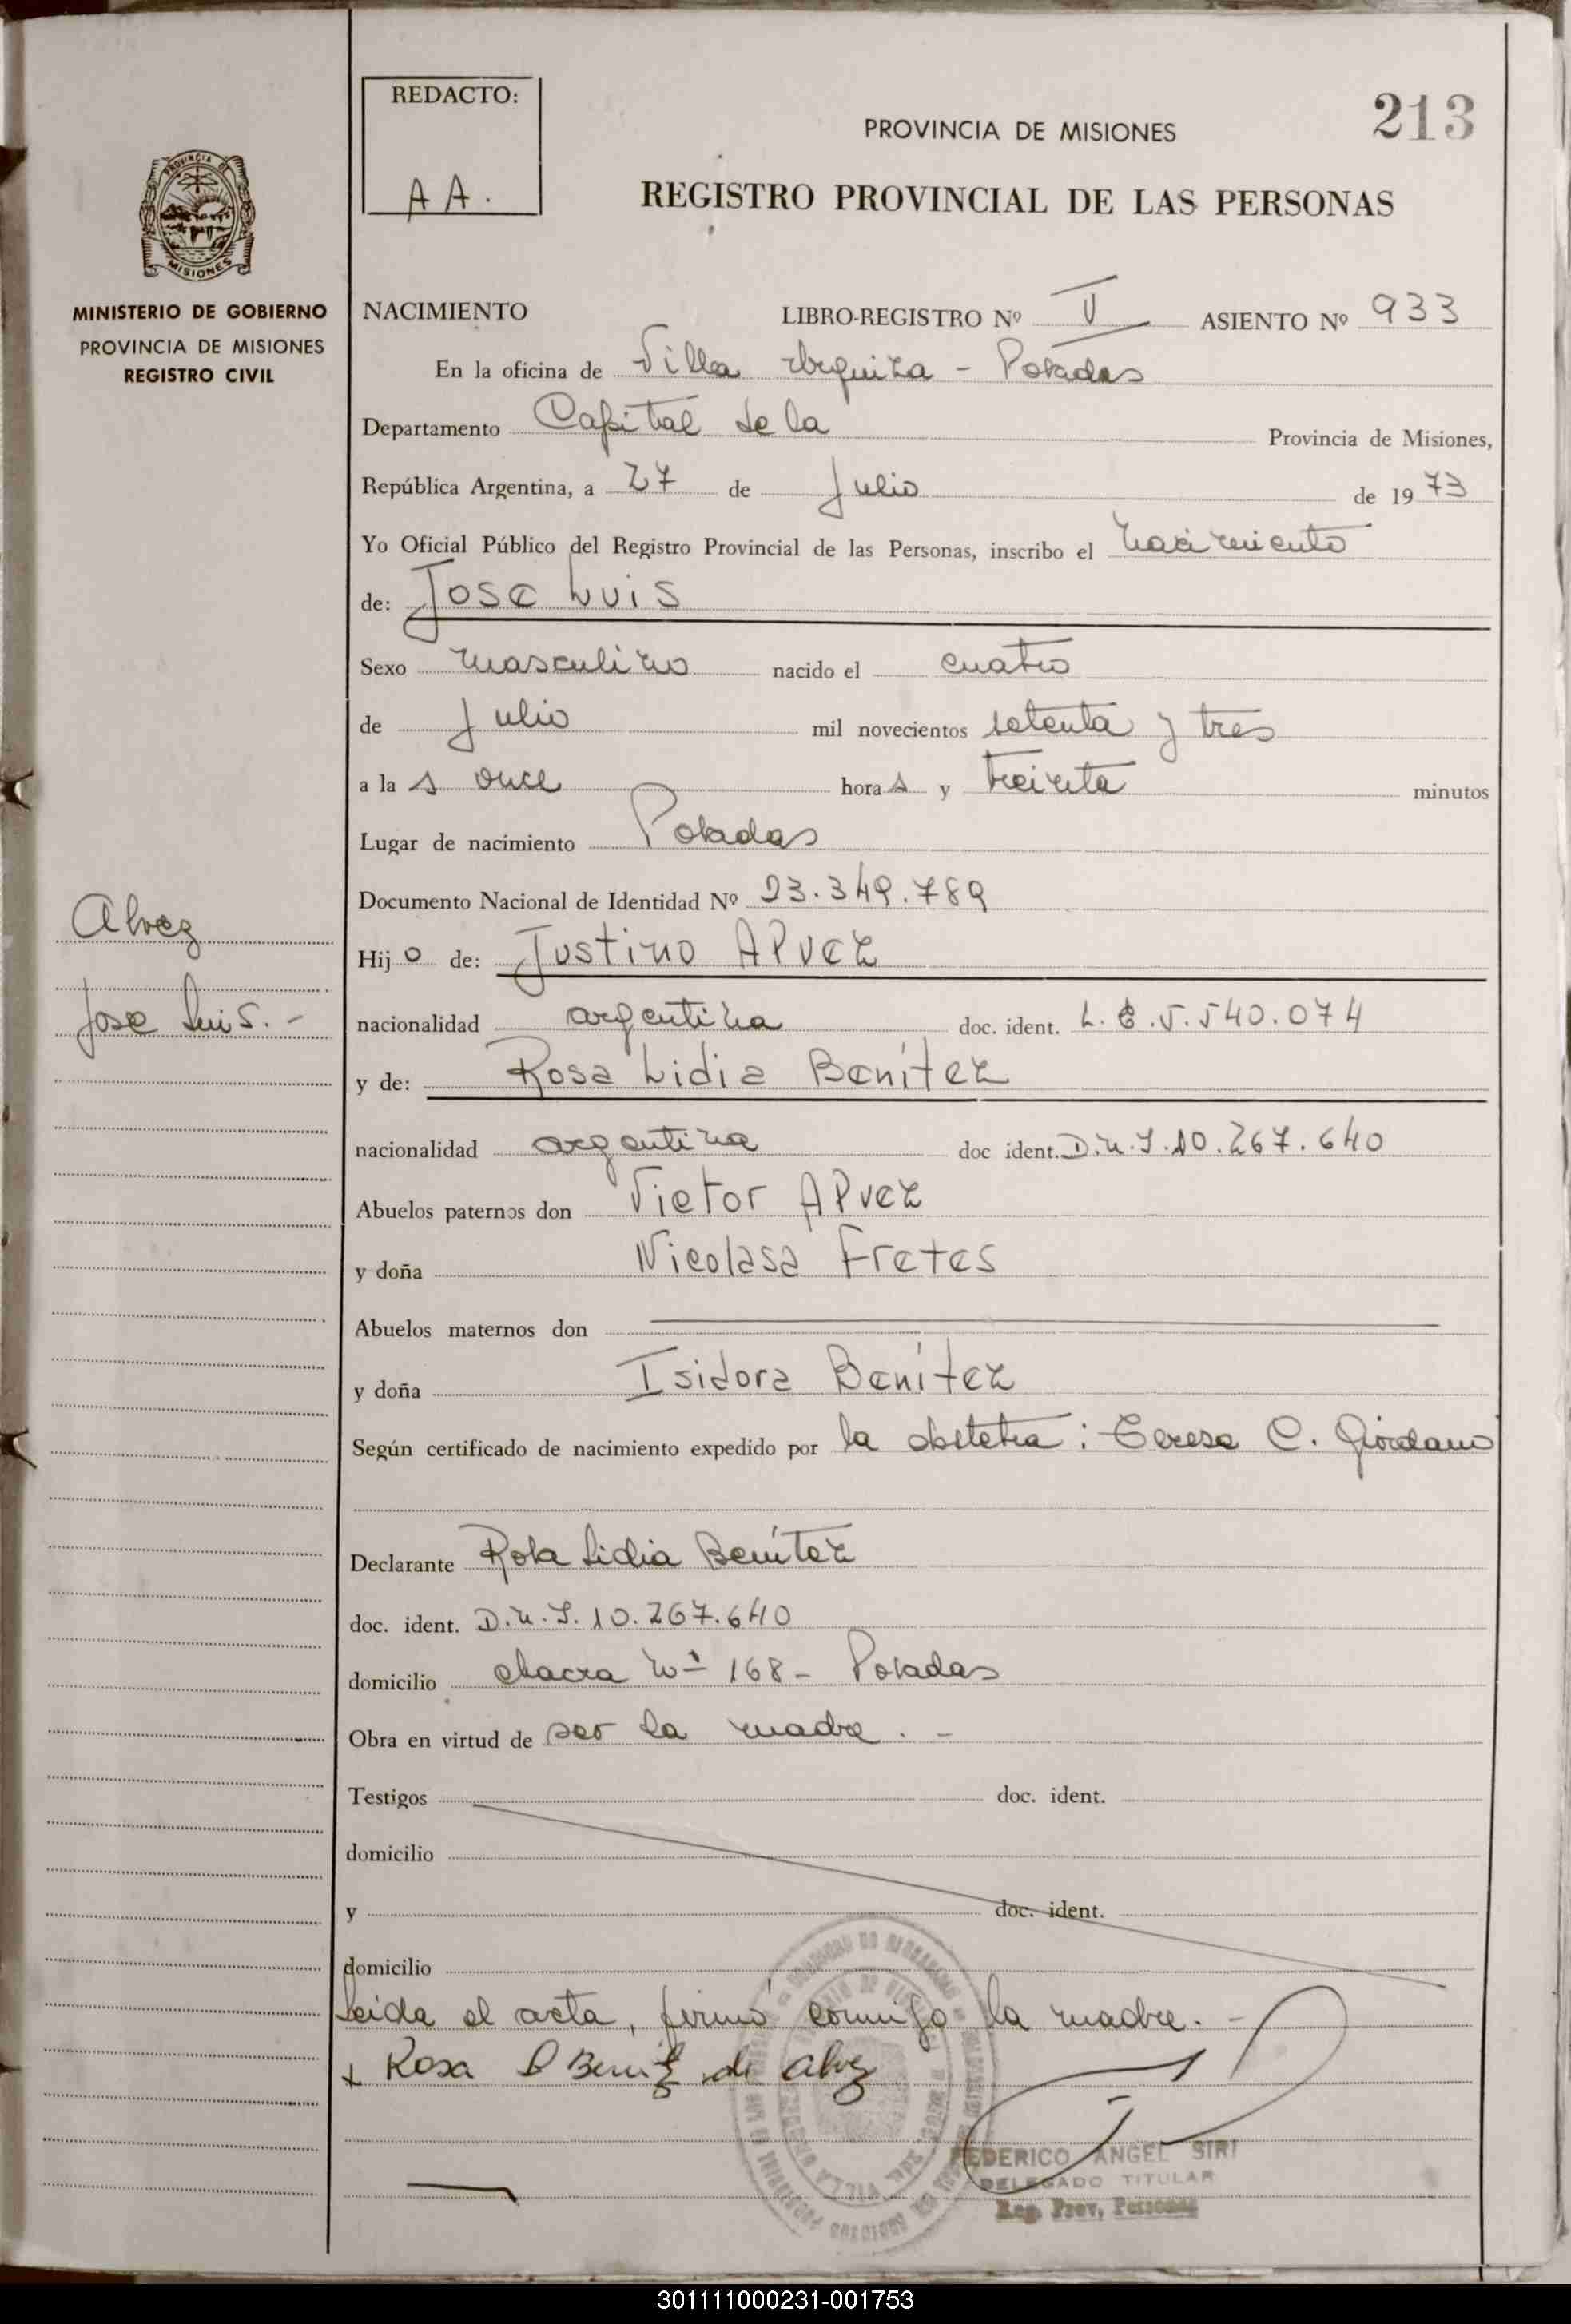 REDACTO:
AA.
213
PROVINCIA DE MISIONES
REGISTRO PROVINCIAL DE LAS PERSONAS
PROVINCIA DE
MISIONES
MINISTERIO DE GOBIERNO
PROVINCIA DE MISIONES
REGISTRO CIVIL
NACIMIENTO LIBRO-REGISTRO Nº V ASIENTO Nº 933
En la oficina de Villa Urquiza - Posadas
Departamento Capital de la Provincia de Misiones,
República Argentina, a 27 de Julio de 1973
Yo Oficial Público del Registro Provincial de las Personas, inscribo el nacimiento
de: Jose Luis
Sexo masculino nacido el cuatro
de Julio mil novecientos setenta y tres
a las once horas y treinta minutos
Lugar de nacimiento Posadas
Documento Nacional de Identidad Nº 23.349.789
Alvez
Hijo de: Justino Alvez
Jose Luis.-
nacionalidad argentina doc. ident. L.E.5.540.074
y de: Rosa Lidia Benítez
nacionalidad argentina doc ident. D.N.I.10.267.640
Abuelos paternos don Victor Alvez
y doña Nicolasa Fretes
Abuelos maternos don
y doña Isidora Benítez
Según certificado de nacimiento expedido por la obstetra: Teresa C. Giordano
Declarante Rosa Lidia Benítez
doc. ident. D.N.I. 10.267.640
domicilio chacra Nº 168 - Posadas
Obra en virtud de ser la madre. -
Testigos doc. ident.
domicilio
y doc. ident.
domicilio
Leida el acta, firmó conmigo la madre. -
x Rosa L Benitez de Alvez
FEDERICO ANGEL SIRI
DELEGADO TITULAR
Reg. Prov. Personas
301111000231-001753